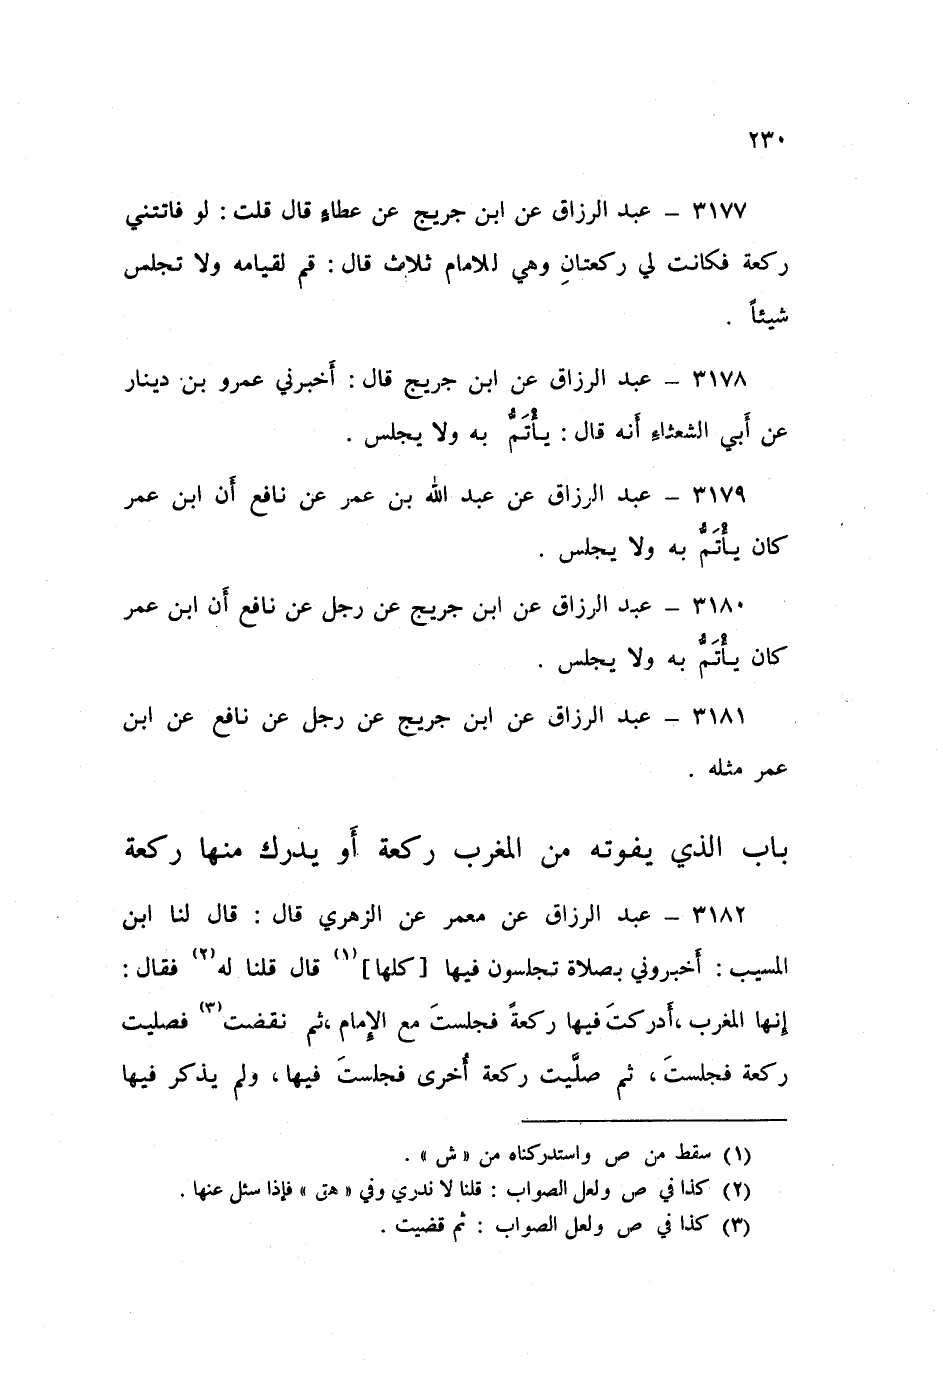 ٢٣٠
٣١٧٧ – عبد الرزاق عن ابن جريج عن عطاء قال قلت : لو فاتتني
ركعة فكانت لي ركعتانِ وهي للامام ثلاث قال : قم لقيامه ولا تجلس
شيئاً .
٣١٧٨ – عبد الرزاق عن ابن جريج قال : أَخبرني عمرو بن دينار
عن أَبي الشعثاء أَنه قال : يأْتَمُّ به ولا يجلس .
٣١٧٩ – عبد الرزاق عن عبد الله بن عمر عن نافع أَن ابن عمر
كان يأْتَمُّ به ولا يجلس .
٣١٨٠ – عبد الرزاق عن ابن جريج عن رجل عن نافع أَن ابن عمر
كان يأْتَمُّ به ولا يجلس .
٣١٨١ – عبد الرزاق عن ابن جريج عن رجل عن نافع عن ابن
عمر مثله .
باب الذي يفوته من المغرب ركعة أَو يدرك منها ركعة
٣١٨٢ – عبد الرزاق عن معمر عن الزهري قال : قال لنا ابن
المسيب : أَخبروني بصلاة تجلسون فيها [كلها](١) قال قلنا له(٢) فقال :
إنها المغرب ،أَدركتَ فيها ركعةً فجلستَ مع الإمام ،ثم نقضت(٣) فصليت
ركعة فجلستَ ، ثم صلَّيت ركعة أُخرى فجلستَ فيها ، ولم يذكر فيها
(١) سقط من ص واستدركناه من « ش » .
(٢) كذا في ص ولعل الصواب : قلنا لا ندري وفي « هق » فإذا سئل عنها .
(٣) كذا في ص ولعل الصواب : ثم قضيت .